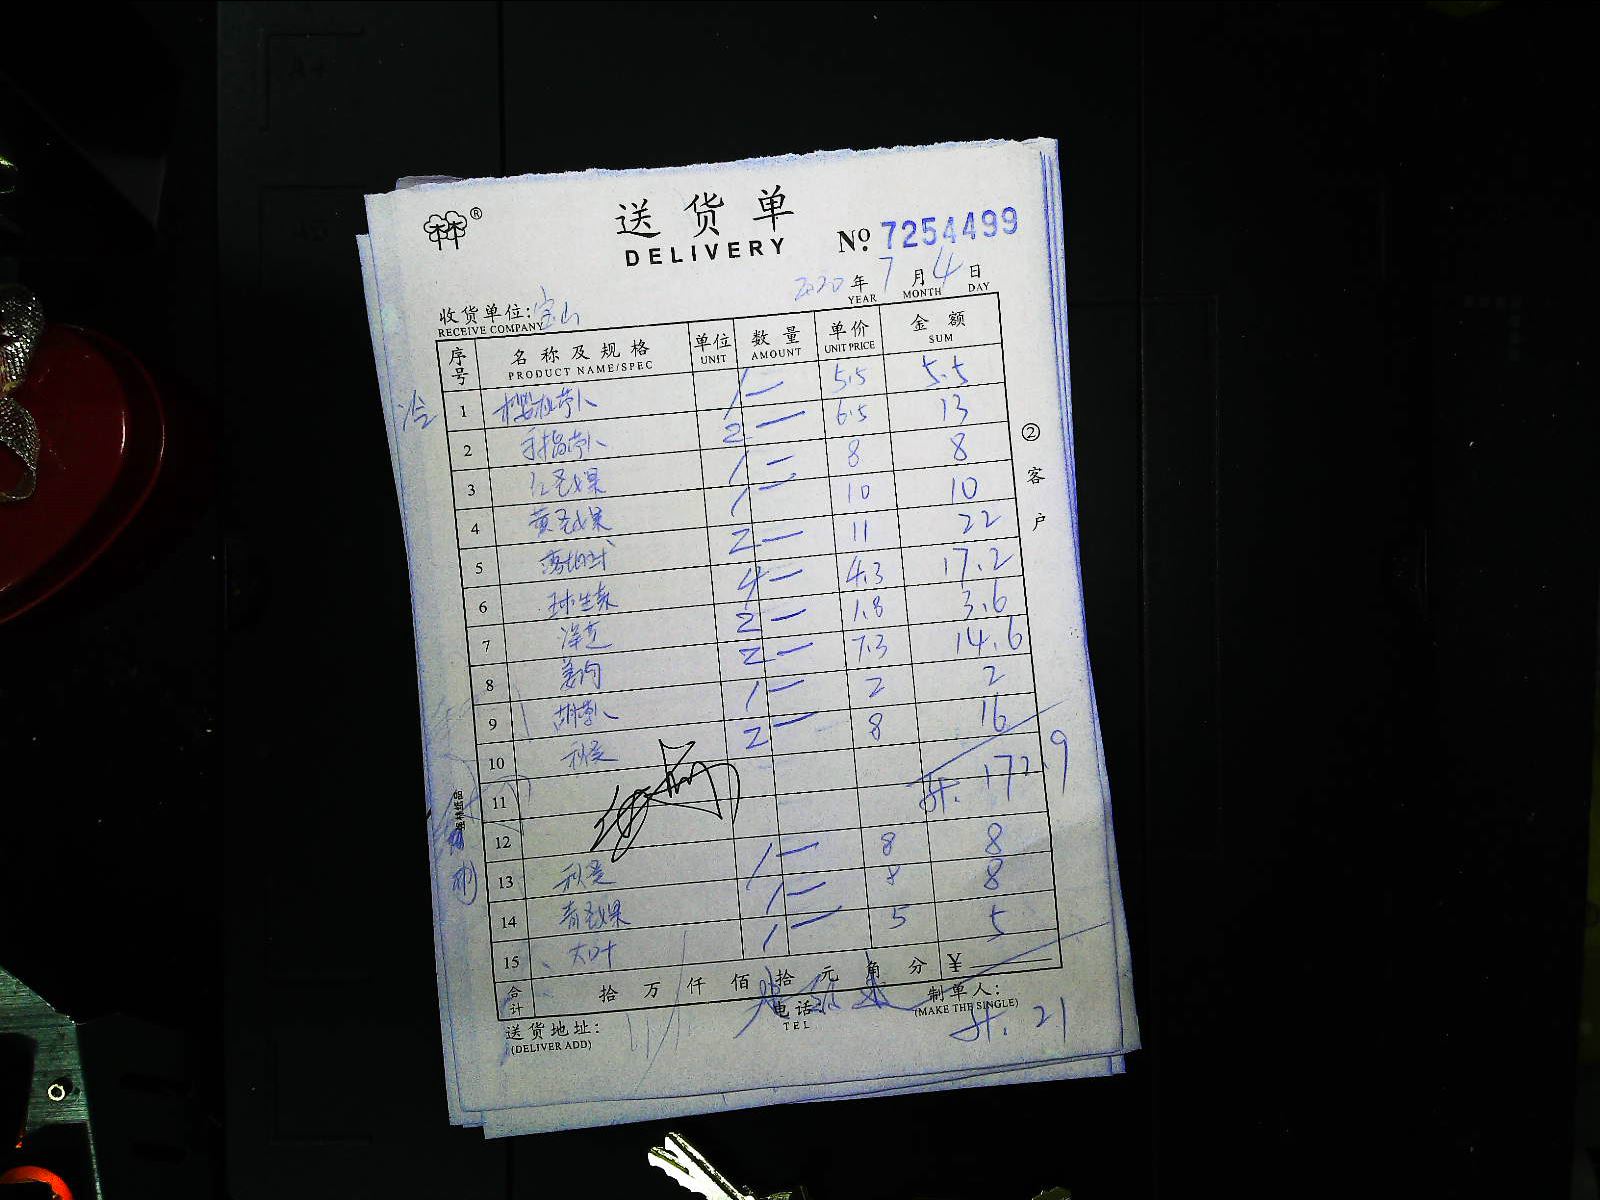 送货单
DELIVERY
№ 7254499
2020年7月4日
YEAR MONTH DAY
收货单位:宝山
RECEIVE COMPANY
序号 名称及规格 单位 数量 单价 金额
PRODUCT NAME/SPEC UNIT AMOUNT UNIT PRICE SUM
冷
1 樱桃萝卜 1 — 5.5 5.5
2 手指萝卜 2 — 6.5 13
3 红圣女果 1 — 8 8
4 黄圣女果 1 — 10 10
5 2 — 11 22
6 球生菜 4 — 4.3 17.2
7 洋芫 2 — 1.8 3.6
8 2 — 7.3 14.6
9 胡萝卜 1 — 2 2
10 秋葵 2 — 8 16
11 计. 172.9
12
13 秋葵 1 — 8 8
14 青圣女果 1 — 8 8
15 大叶 1 — 5 5
合计 拾 万 仟 佰 拾 元 角 分 ¥
②客户
送货地址:
(DELIVER ADD)
电话:
TEL
制单人:
(MAKE THE SINGLE)
计. 21